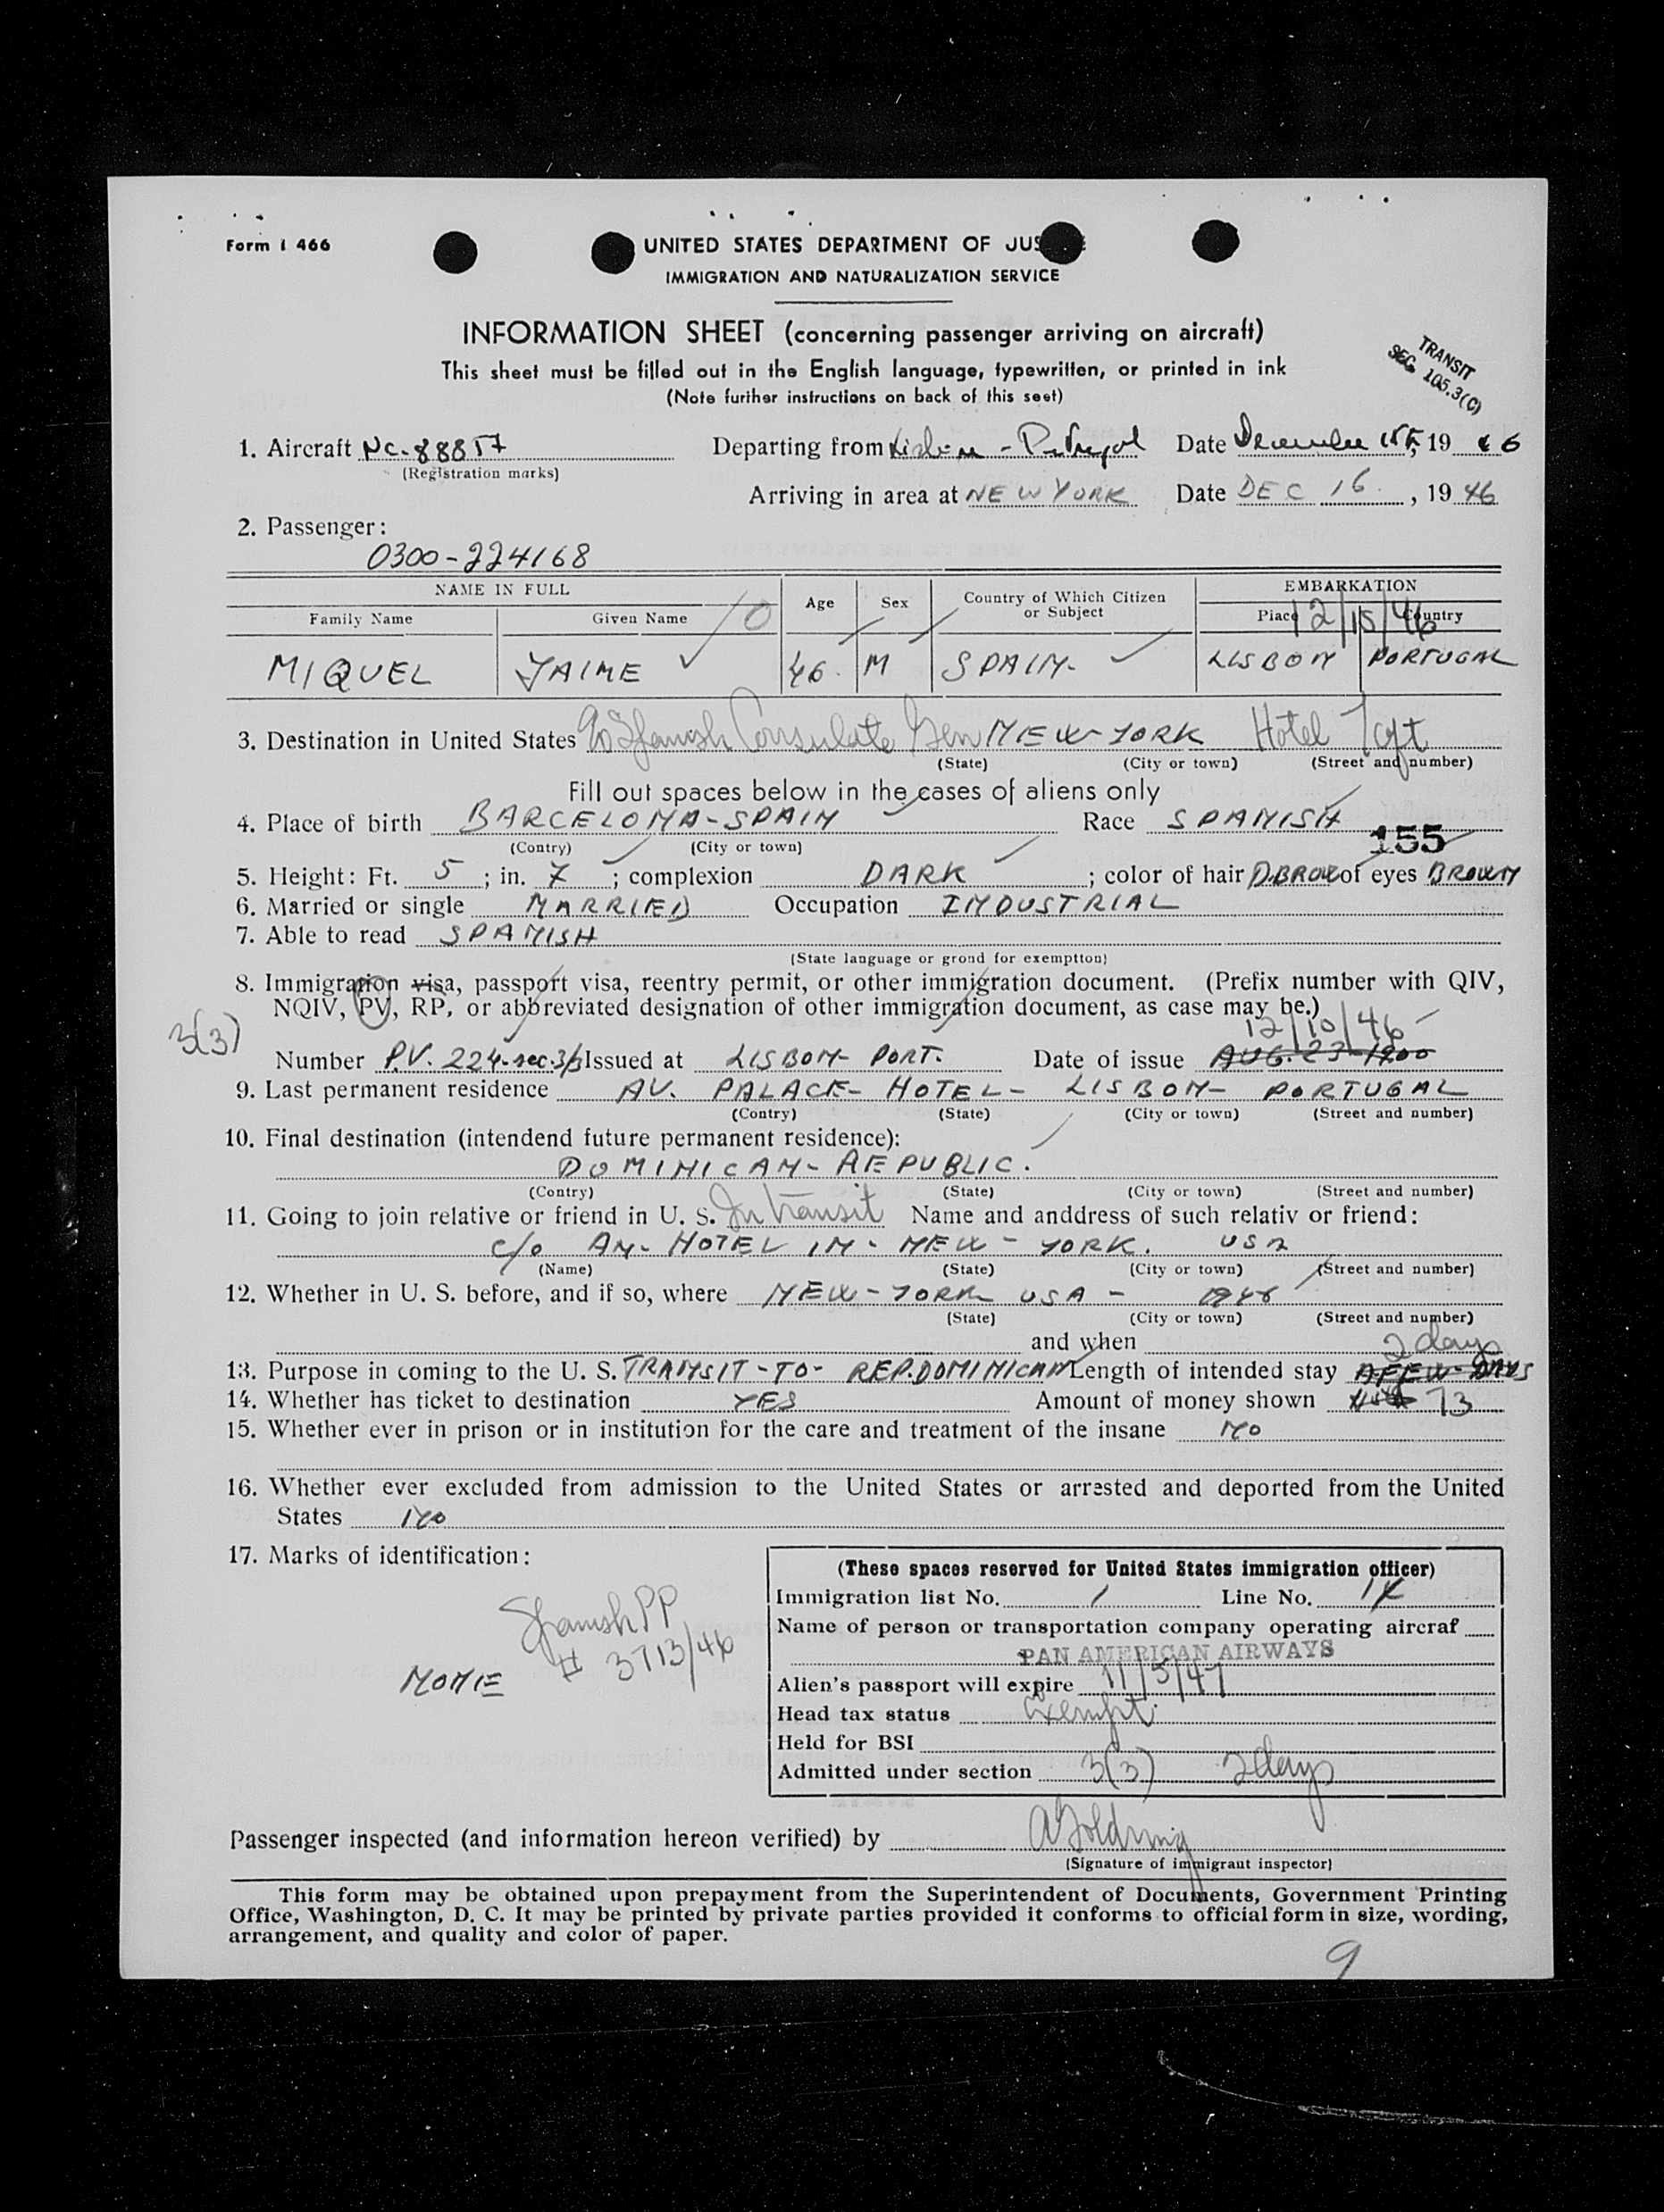 Form I 466
UNITED STATES DEPARTMENT OF JUS E
IMMIGRATION AND NATURALIZATION SERVICE
INFORMATION SHEET (concerning passenger arriving on aircraft)
This sheet must be filled out in the English language, typewritten, or printed in ink
(Note further instructions on back of this seet)
TRANSIT
SEC. 105.3(C)
1. Aircraft NC-88857 Departing from Lisbon - Portugal Date December 15t, 19 46
(Registration marks)
Arriving in area at NEW YORK Date DEC 16, 19 46
2. Passenger:
0300-224168
NAME IN FULL Age Sex Country of Which Citizen or Subject EMBARKATION
Family Name Given Name Place Country
12/15/46
MIQUEL JAIME 46. M SPAIN- LISBON PORTUGAL
3. Destination in United States c/o Spanish Consulate Gen NEW-YORK Hotel Taft
(State) (City or town) (Street and number)
Fill out spaces below in the cases of aliens only
4. Place of birth BARCELONA-SPAIN Race SPANISH
(Contry) (City or town)
155
5. Height: Ft. 5 ; in. 7 ; complexion DARK ; color of hair D.BROW of eyes BROWN
6. Married or single MARRIED Occupation INDUSTRIAL
7. Able to read SPANISH
(State language or grond for exemptton)
8. Immigration visa, passport visa, reentry permit, or other immigration document. (Prefix number with QIV,
NQIV, PV, RP, or abbreviated designation of other immigration document, as case may be.)
3(3)
12/10/46
Number P.V. 224-sec.3/3 Issued at LISBON- PORT. Date of issue AUG. 23-1900
9. Last permanent residence AV. PALACE- HOTEL- LISBON- PORTUGAL
(Contry) (State) (City or town) (Street and number)
10. Final destination (intendend future permanent residence):
DOMINICAN- REPUBLIC.
(Contry) (State) (City or town) (Street and number)
11. Going to join relative or friend in U. S. In transit Name and anddress of such relativ or friend:
c/o AN- HOTEL IN- NEW- YORK. USA
(Name) (State) (City or town) (Street and number)
12. Whether in U. S. before, and if so, where NEW-YORK USA - 1946
(State) (City or town) (Street and number)
and when
2 days
13. Purpose in coming to the U. S. TRANSIT-TO- REP.DOMINICAN Length of intended stay A FEW-DAYS
14. Whether has ticket to destination YES Amount of money shown 73
15. Whether ever in prison or in institution for the care and treatment of the insane NO
16. Whether ever excluded from admission to the United States or arrested and deported from the United
States NO
17. Marks of identification:
Spanish PP
# 3713/46
NONE
(These spaces reserved for United States immigration officer)
Immigration list No. 1 Line No. 14
Name of person or transportation company operating aircraf
PAN AMERICAN AIRWAYS
Alien's passport will expire 11/5/47
Head tax status Exempt
Held for BSI
Admitted under section 3(3) 2 days
Passenger inspected (and information hereon verified) by A Goldring
(Signature of immigrant inspector)
This form may be obtained upon prepayment from the Superintendent of Documents, Government Printing
Office, Washington, D. C. It may be printed by private parties provided it conforms to official form in size, wording,
arrangement, and quality and color of paper.
9